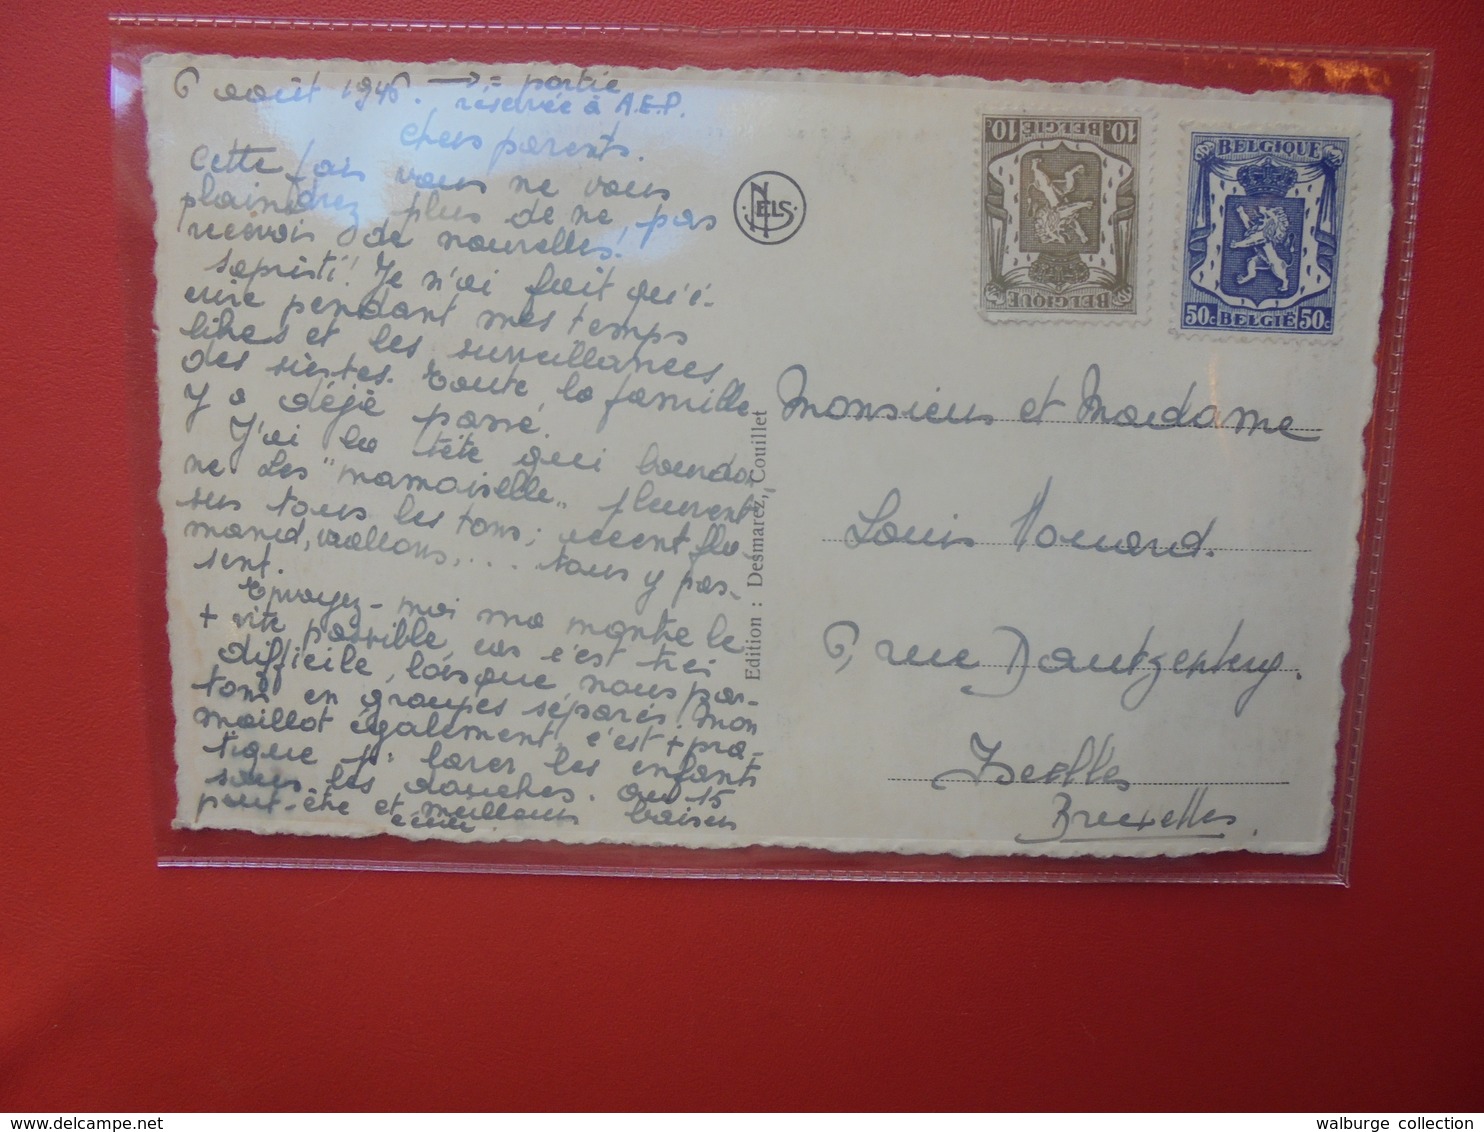 6 août 1946. → = partie
réservée à A.E.P.
Chers parents.
Cette fois vous ne vous
plaindrez plus de ne pas
recevoir de nouvelles!
Sapristi! Je n'ai fait qu'é-
crire pendant mes temps
libres et les surveillances
des siestes. Toute la famille
y a déjà passé.
J'ai la tête qui bourdon-
ne. Les "mamaiselle" pleuvent
sur tous les tons; accent fla-
mand, wallons, ... tous y pas-
sent.
Envoyez-moi ma montre le
+ vite possible, car c'est très
difficile, lorsque nous par-
tons en groupes séparés. Mon
maillot également, c'est + pra-
tique pr laver les enfants
sous les douches. Au 15
peut-être et meilleurs baisers
NELS
BELGIE
10c 10c
BELGIQUE
BELGIQUE
50c BELGIË 50c
Edition : Desmarez, Couillet
Monsieur et Madame
Louis
6, rue Dautzenberg.
Ixelles
Bruxelles.
walburge collection